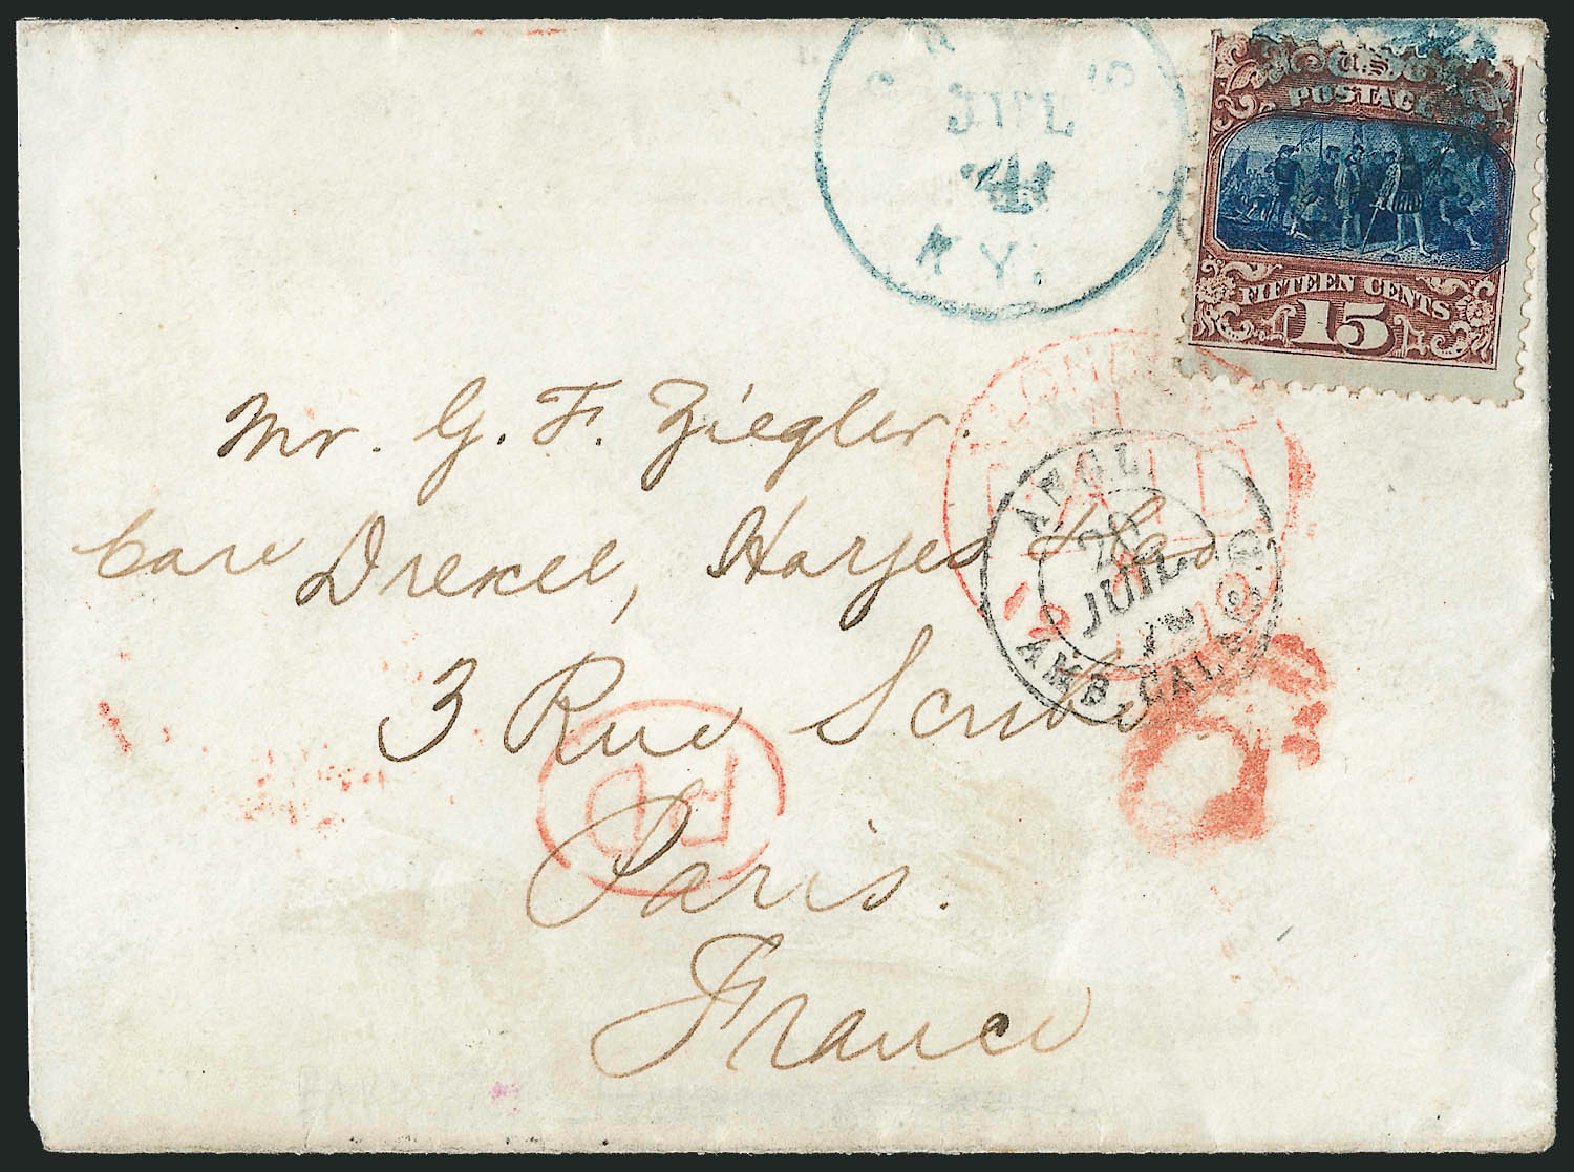 JUL
4
KY.
U.S.
POSTAGE
FIFTEEN CENTS
15
Mr. G. F. Ziegler.
Care Drexel, Harjes & Co
3 Rue Scribe
Paris.
France
LONDON
PAID
ANGL
20
JUIL
AMB. CALAIS
PD